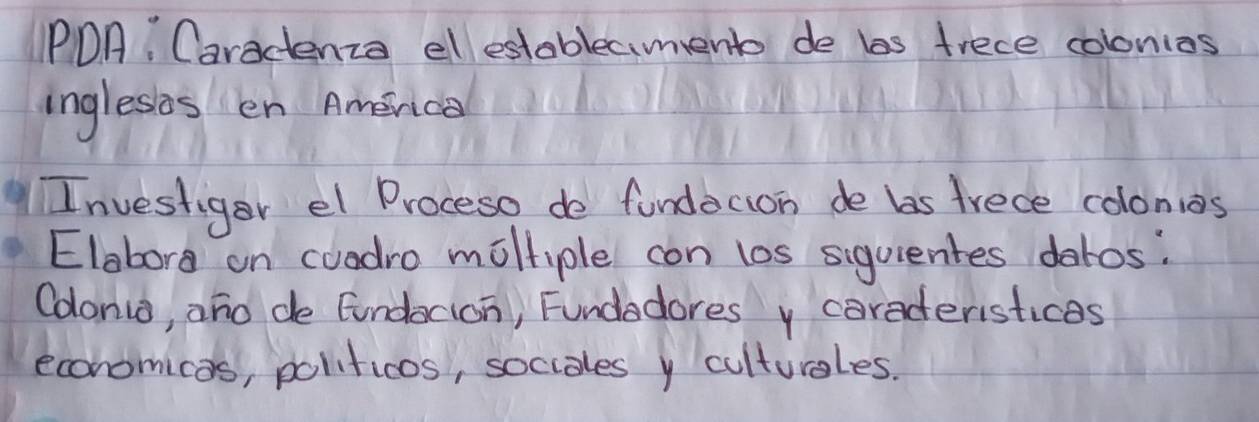 PDA: Caracteriza el establecimiento de las trece colonias
inglesas en América
• Investigar el Proceso de fundación de las trece colonias
• Elabora un cuadro múltiple con los siguientes datos:
Colonia, año de Fundación, Fundadores y características
economicas, políticos, sociales y culturales.